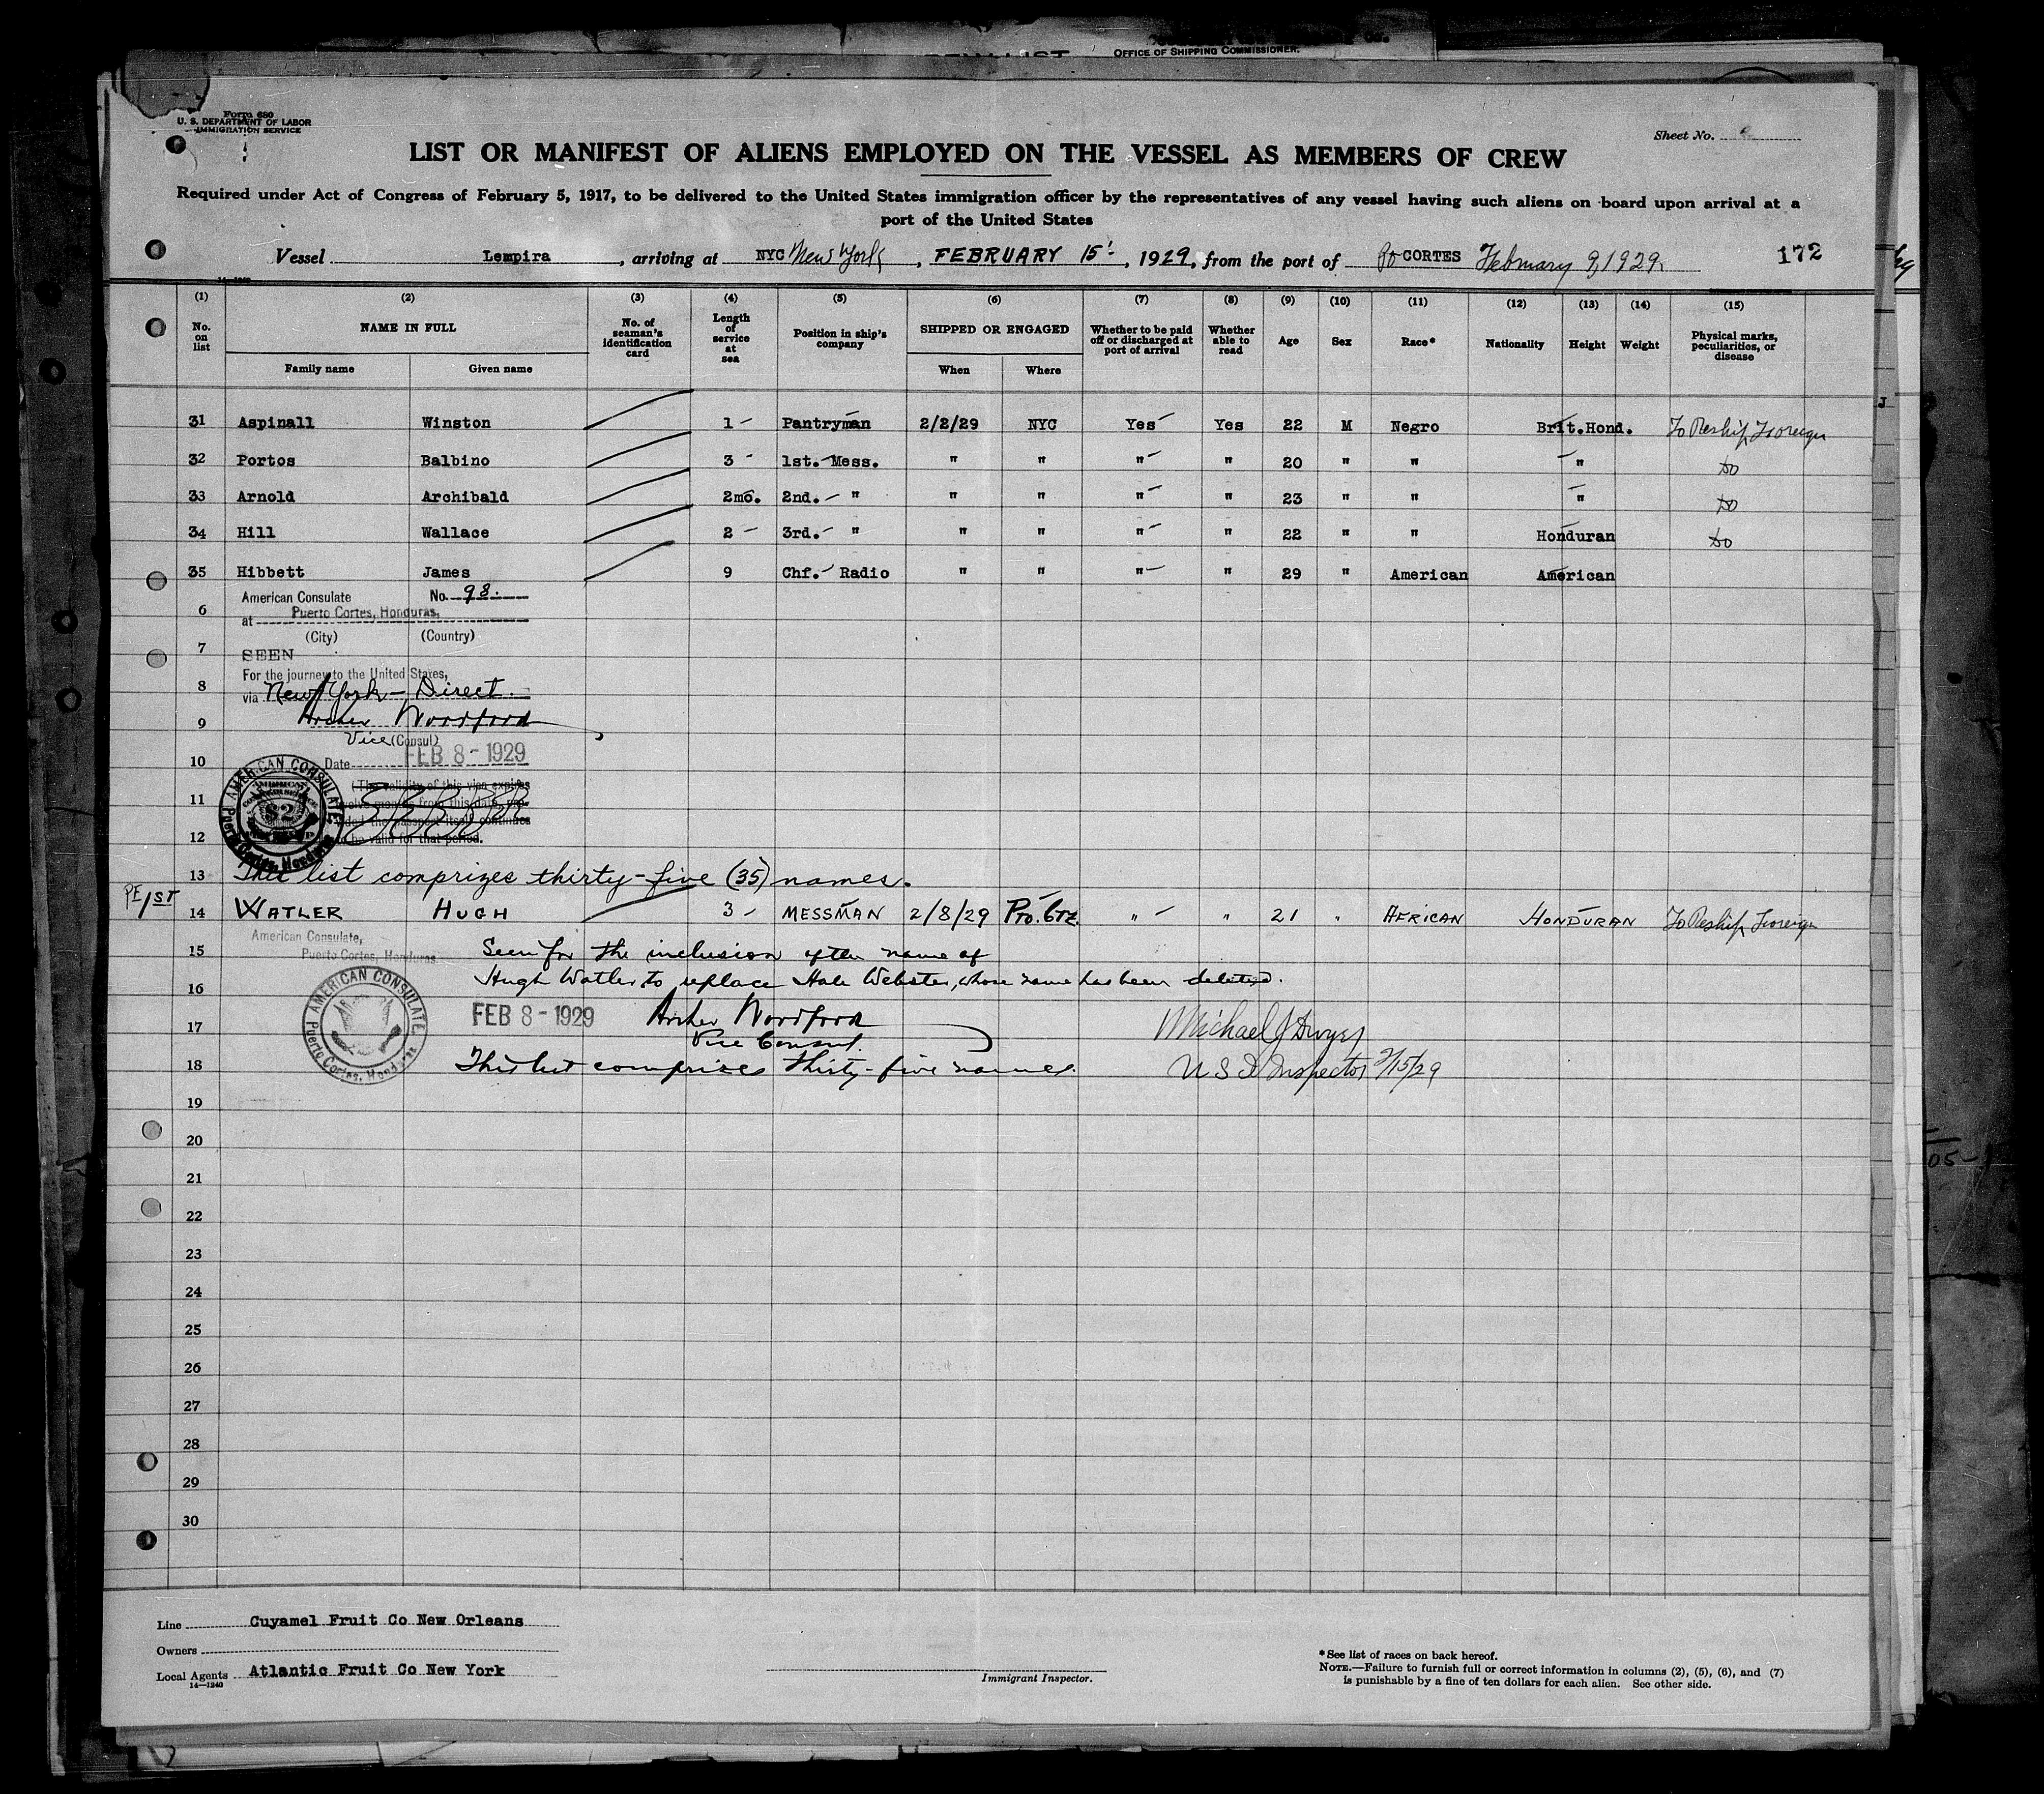 OFFICE OF SHIPPING COMMISSIONER.
Form 680
U. S. DEPARTMENT OF LABOR
IMMIGRATION SERVICE
Sheet No.
LIST OR MANIFEST OF ALIENS EMPLOYED ON THE VESSEL AS MEMBERS OF CREW
Required under Act of Congress of February 5, 1917, to be delivered to the United States immigration officer by the representatives of any vessel having such aliens on board upon arrival at a
port of the United States
Vessel Lempira, arriving at NYC New York, FEBRUARY 15, 1929, from the port of Po CORTES February 9, 1929. 172
(1) (2) (3) (4) (5) (6) (7) (8) (9) (10) (11) (12) (13) (14) (15)
No. on list NAME IN FULL Family name Given name No. of seaman's identification card Length of service at sea Position in ship's company SHIPPED OR ENGAGED When Where Whether to be paid off or discharged at port of arrival Whether able to read Age Sex Race* Nationality Height Weight Physical marks, peculiarities, or disease
31 Aspinall Winston 1 - Pantryman 2/2/29 NYC Yes Yes 22 M Negro Brit.Hond. To Reship Foreign
32 Portos Balbino 3 - 1st. Mess. " " " " 20 " " " do
33 Arnold Archibald 2mo. 2nd. " " " " " 23 " " " do
34 Hill Wallace 2 - 3rd. " " " " " 22 " " Honduran do
35 Hibbett James 9 Chf. Radio " " " " 29 " American American
American Consulate No. 98.
6 at Puerto Cortes, Honduras,
(City) (Country)
7 SEEN
For the journey to the United States,
8 via New York - Direct.
9 Archer Woodford
Vice (Consul)
10 Date FEB 8 - 1929
AMERICAN CONSULATE, Puerto Cortes, Honduras
11 (The validity of this visa expires
twelve months from this date, pro-
vided the passport itself continues
12 to be valid for that period.
13 This list comprizes thirty-five (35) names.
PE/1ST 14 WATLER HUGH 3 - MESSMAN 2/8/29 Pto. Ctz. " " 21 " AFRICAN HONDURAN To Reship Foreign
American Consulate,
Puerto Cortes, Honduras.
15 Seen for the inclusion of the name of
16 Hugh Watler to replace Hale Webster, whose name has been deleted.
AMERICAN CONSULATE, Puerto Cortes, Honduras
17 FEB 8 - 1929 Archer Woodford Michael J Dwyer
Vice Consul.
18 This list comprizes thirty-five names. U S I Inspector 2/15/29
19
20
21
22
23
24
25
26
27
28
29
30
Line Cuyamel Fruit Co New Orleans
Owners
Local Agents Atlantic Fruit Co New York
14—1240
Immigrant Inspector.
*See list of races on back hereof.
NOTE.—Failure to furnish full or correct information in columns (2), (5), (6), and (7)
is punishable by a fine of ten dollars for each alien. See other side.